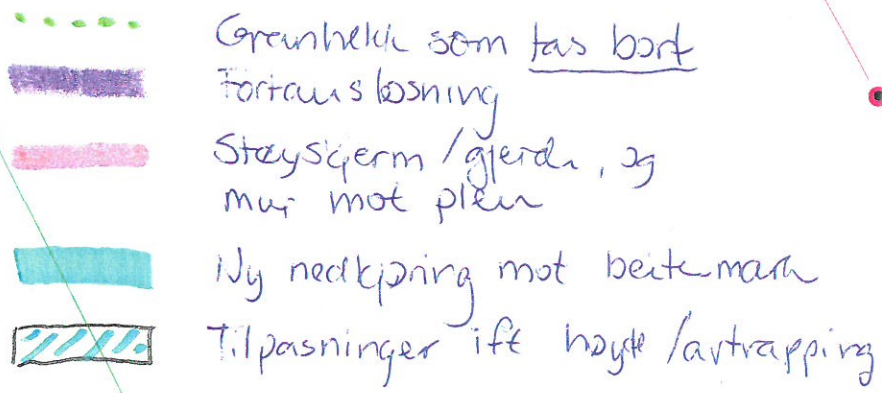 Granhekk som tas bort
Fortausløsning
Støyskjerm / gjerde, og
mur mot plen
Ny nedkjøring mot beitemark
Tilpasninger ift høyde / avtrapping